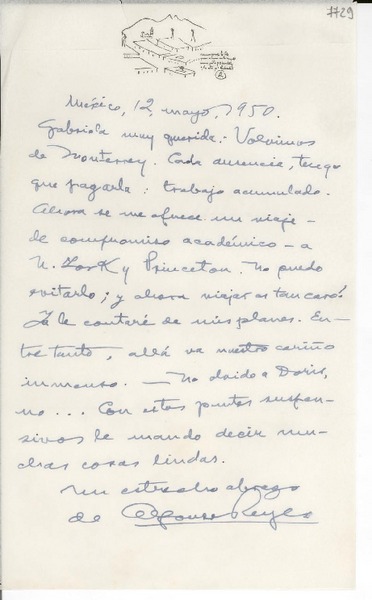 #29
México, 12, mayo, 1950.
Gabriela muy querida: Volvimos
de Monterrey. Cada ausencia, tengo
que pagarla: trabajo acumulado.
Ahora se me ofrece un viaje -
de compromiso académico - a
N. York y Princeton. No puedo
evitarlo; y ahora viajar es tan caro!
Ya le contaré de mis planes. En-
tre tanto, allá va nuestro cariño
inmenso. — No olvido a Doris,
no... Con estos puntos suspen-
sivos le mando decir mu-
chas cosas lindas.
Un estrecho abrazo
de Alfonso Reyes